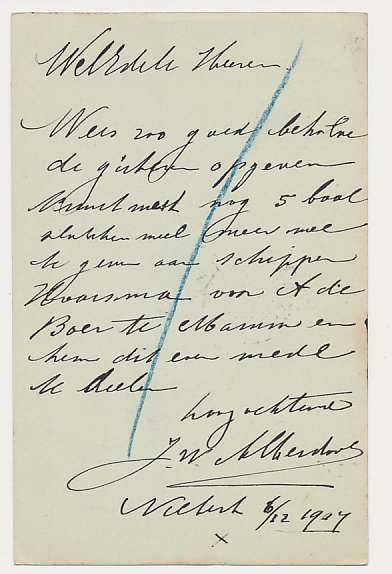 WelEdele Heeren
Wees zoo goed behalve
de gister opgeven
Kunstmest nog 5 baal
slakken meel meer mee
te geven aan schipper
Hoorsma voor A de
Boer te Marum en
hem dit even mede
te deelen
hoogachtend
J. W. Alberda
Niebert 6/12 1907